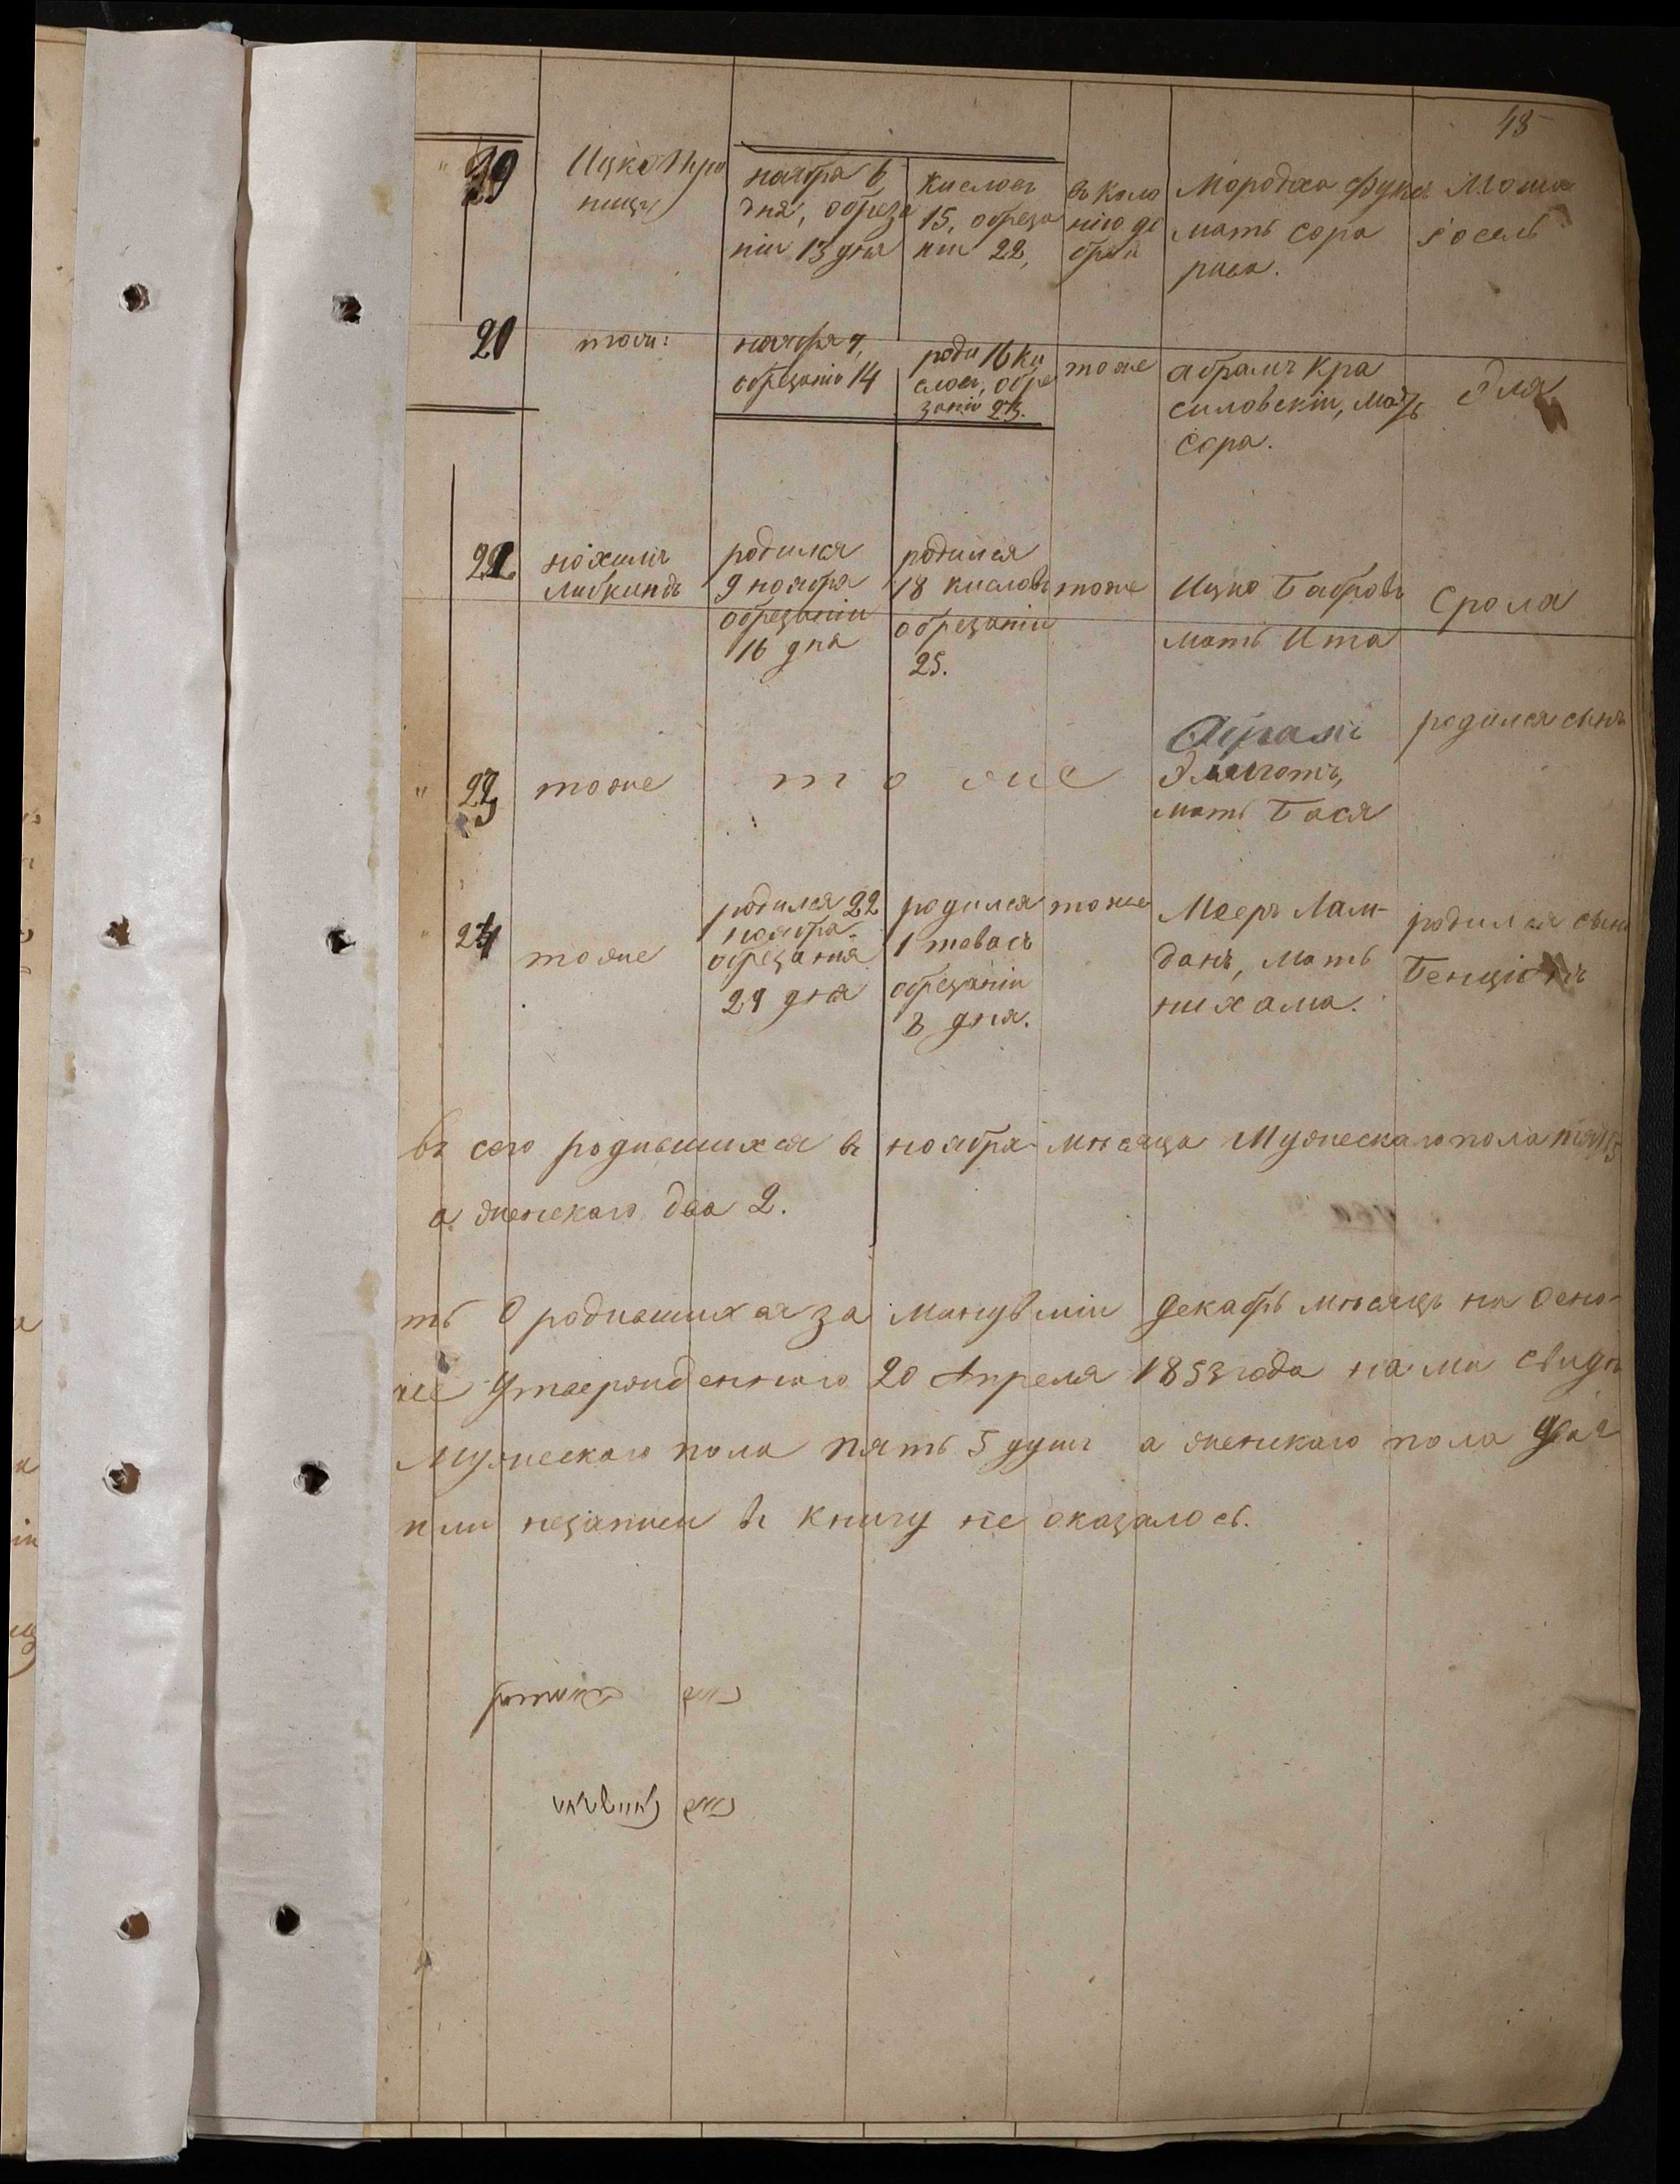 45
19
Ицко Про
ницъ
ноября 6
дня, обреза
нія 13 дня
Кислевъ
15, обреза
нія 22,
въ коло
нію до
брой
Мордхо Фуксъ
мать Сора
рися.
Мошко
Іосель
20
тоже:
ноября 7,
обрезанія 14
роди 16 ки
слевъ, обре
занія 23.
тоже
Абрамъ Кра
силовскій, мать
Сора.
Эля
21
Нохимъ
Либкиндъ
родился
9 ноября
обрезанія
16 дня
родился
18 кислевъ
обрезанія
25.
тоже
Ицко Бобровъ
мать Ита
Срола
" 23
тоже
тоже
Абрамъ
мать Бася
родился сынъ
" 24
тоже
родился 22
ноября
обрезанія
29 дня
родился
1 тевасъ
обрезанія
8 дня.
тоже
Мееръ Лам-
данъ, мать
нихама.
родился сынъ
Бенціонъ
въ сего родившихся въ ноября мѣсяца Мужескаго пола пять 5
а женскаго два 2.
ть О родившихся за минувшій декабрь мѣсяцъ на осно-
не утвержденнаго 20 Апреля 1853 года нами свидѣ
Мужескаго пола пять 5 душъ а женскаго пола два 2
или незаписи въ книгу не оказалось.